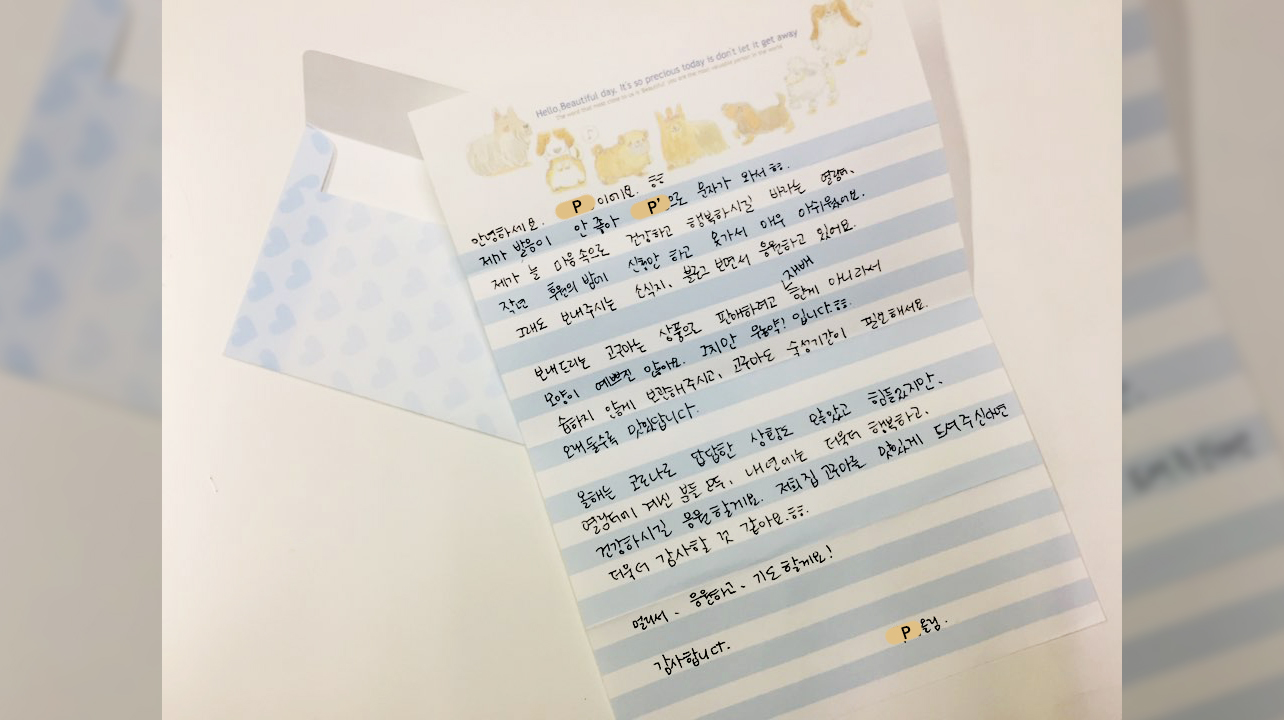 Hello, Beautiful day, It's so precious today is don't let it get away
안녕하세요. P 이에요. ㅎㅎ
제가 발음이 안 좋아 P'으로 문자가 와서 ㅎㅎ.
제가 늘 마음속으로 건강하고 행복하시길 바라는 열림터,
작년 후원의 밤에 신청만 하고 못가서 매우 아쉬웠어요.
그래도 보내주시는 소식지, 블로그 보면서 응원하고 있어요.
보내드리는 고구마는 상품으로 판매하려고 재배한게 아니라서
모양이 예쁘진 않아요. 하지만 무농약! 입니다.ㅎㅎ.
습하지 않게 보관해주시고, 고구마도 숙성기간이 필요해서요.
오래둘수록 맛있답니다.
올해는 코로나로 답답한 상황도 많았고 힘들었지만,
열림터에 계신 분들 모두, 내년에는 더욱더 행복하고,
건강하시길 응원할게요. 저희집 고구마를 맛있게 드셔주신다면
더욱더 감사할 것 같아요.ㅎㅎ.
멀리서, 응원하고, 기도할게요!
감사합니다.
P 올림.